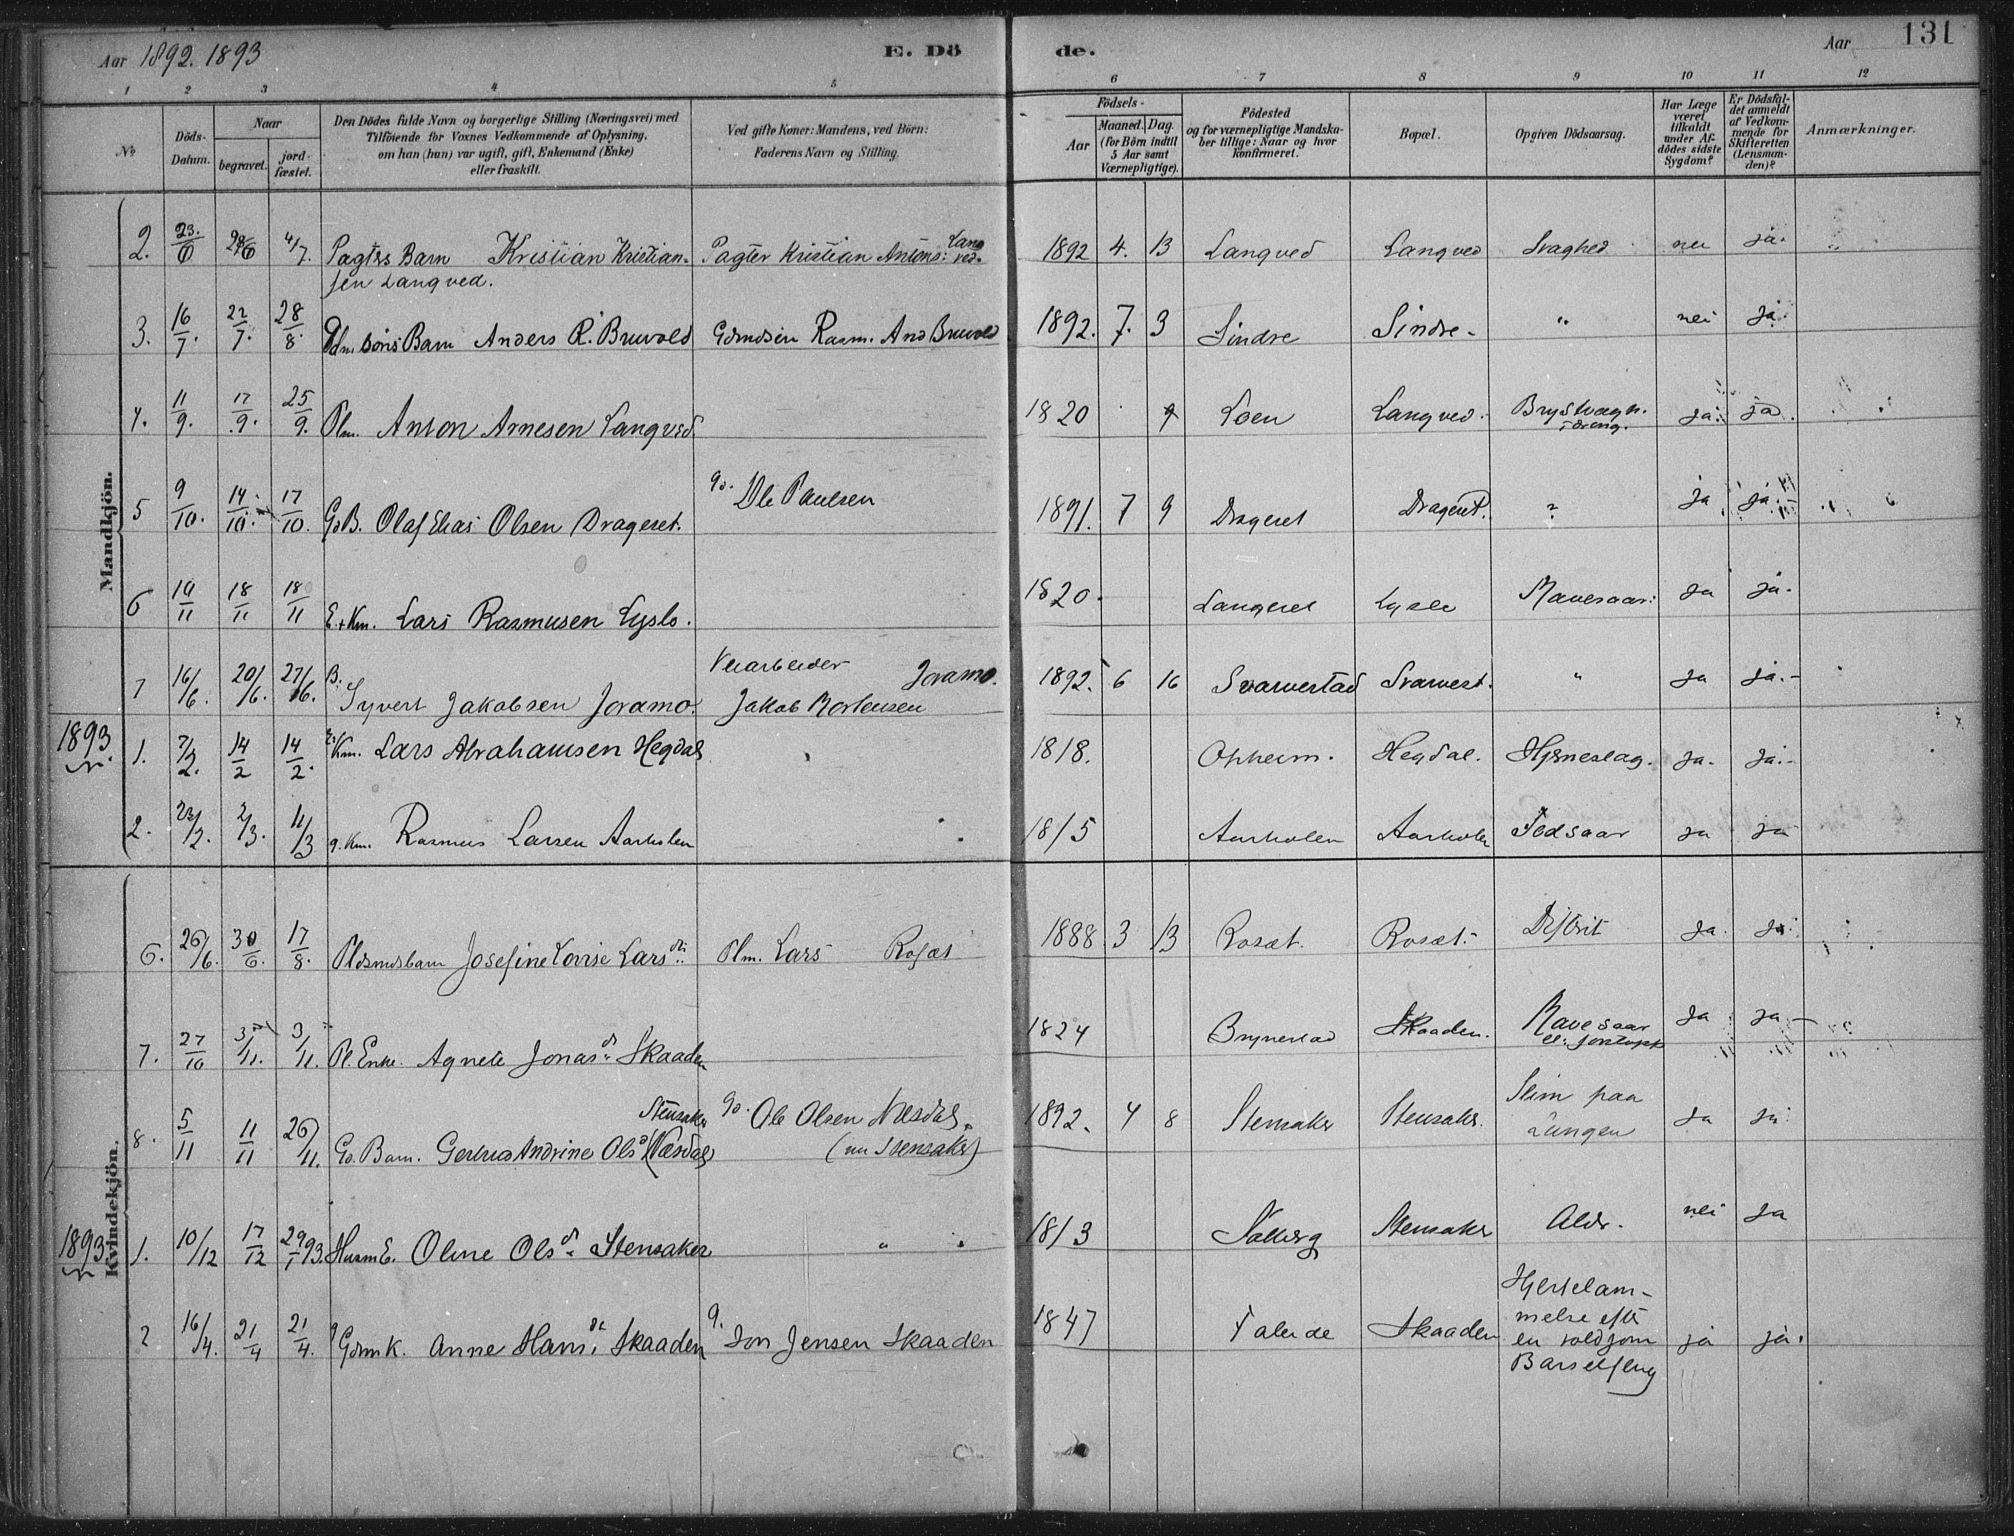 Aar 1892. 1893 E. Dö de. Aar 131
1 2 3 4 5 6 7 8 9 10 11 12
No
Döds-Datum.
Naar
begravet.
jord-fæstet.
Den Dödes fulde Navn og borgerlige Stilling (Næringsvei) med
Tilföiende for Voxnes Vedkommende af Oplysning,
om han (hun) var ugift, gift, Enkemand (Enke)
eller fraskilt.
Ved gifte Koner: Mandens, ved Börn:
Faderens Navn og Stilling.
Födsels-
Aar
Maaned. Dag.
(for Börn indtil
5 Aar samt
Værnepligtige).
Födested
og for værnepligtige Mandska-
ber tillige: Naar og hvor
konfirmeret.
Bopæl.
Opgiven Dödsaarsag.
Har Læge
været
tilkaldt
under Af-
dödes sidste
Sygdom?
Er Dödsfal-
det anmeldt
af Vedkom-
mende for
Skifteretten
(Lensman-
den)?
Anmærkninger.
Mandkjön.
2. 23./6 4/7. Pagters Barn Kristian Kristian- Pagter Kristian Antons: Lang
sen Langved. ved. 1892 4. 13 Langved Langved Svaghed nei ja. "
3. 16/7. 22/7. 28/8. Sons Barn Anders R. Bruvold Rasm. And Bruvold 1892. 7. 3 Sindre Sindre - " nei ja.
4. 11/9. 17/9. 25/9. Plm. Anton Arnesen Langved 1820 Loen Langved. ja. ja.
5 9/10. 14./10. 17/10. G.B. Olaf Elias Olsen Drageset. Go. Ole Paulsen 1891. 7 9 Drageset Drageset. ? ja ja.
6 18/11 18/11 E.+Km. Lars Rasmusen Lyslo. 1820. Langeset Lyslo Mavesaar: ja ja.
7 16/6. 20/6. 27/6. B. Syvert Jakobsen Joramo. Veiarbeider Joramo.
Jakob Mortensen 1892. 6 16 Svarvestad Svarvest. " ja ja.-
1893. 1. 7/2. 14/2 14/2. Km. Lars Abrahamsen Hegdal 1818. Opheim. Hegdal. Hjerneslag. ja. ja.-
2. 22/2. 2/3. 11/3 g. Km. Rasmus Larsen Aarholen 1815 Aarholen Aarholen Fodsaar ja ja
Kvindekjön.
6. 26/6. 30/6. 17/8. Josefine Lovise Lars d: Plm. Lars Rosæt 1888. 3 13 Rosæt. Rosæt. Difterit ja. ja.
7. 27/10 3/11. 3/11. Pl. Enke. Agnete Jonas d: Skaaden 1824 Brynestad Skaaden. Mavesaar ja ja -
8. 5/11 11/11 26/11. Go. Barn. Gertrud Andrine Ols d (Næsdal) Stensaker Go. Ole Olsen Næsdal.
(nu Stensaker) 1892. 4 8 Stensaker Stensaker. Slim paa
Lungen ja ja.
1893 1. 10/12 17/12 29/1 93. Husm E. Oline Ols d: Stensaker " 1813 Solberg Stensaker Alder. nei ja
2 16/4. 21/4 21/4. Gdm K. Anne Hans d: Skaaden g. Jon Jensen Skaaden 1847 Faleide Skaaden Hjertelam-
melse efter
en voldsom
Barselfeng ja ja.